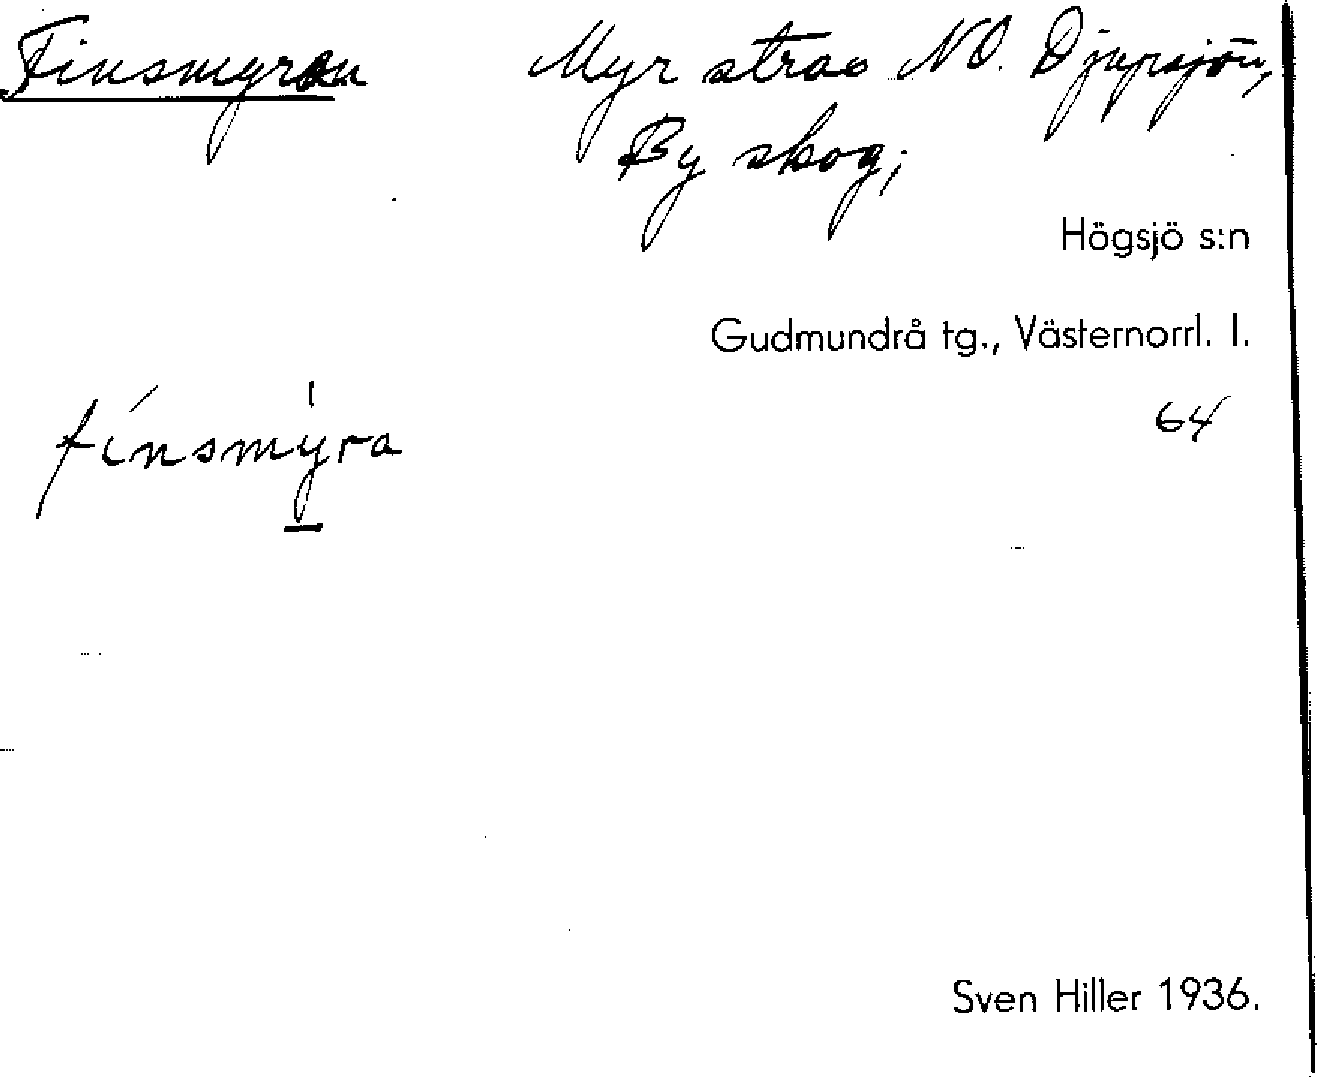 Finsmyran Myr strax NO. Djupsjön,
By skog;
Högsjö s:n
Gudmundrå tg., Västernorrl. l.
64
fínsmy̱ra
Sven Hiller 1936.